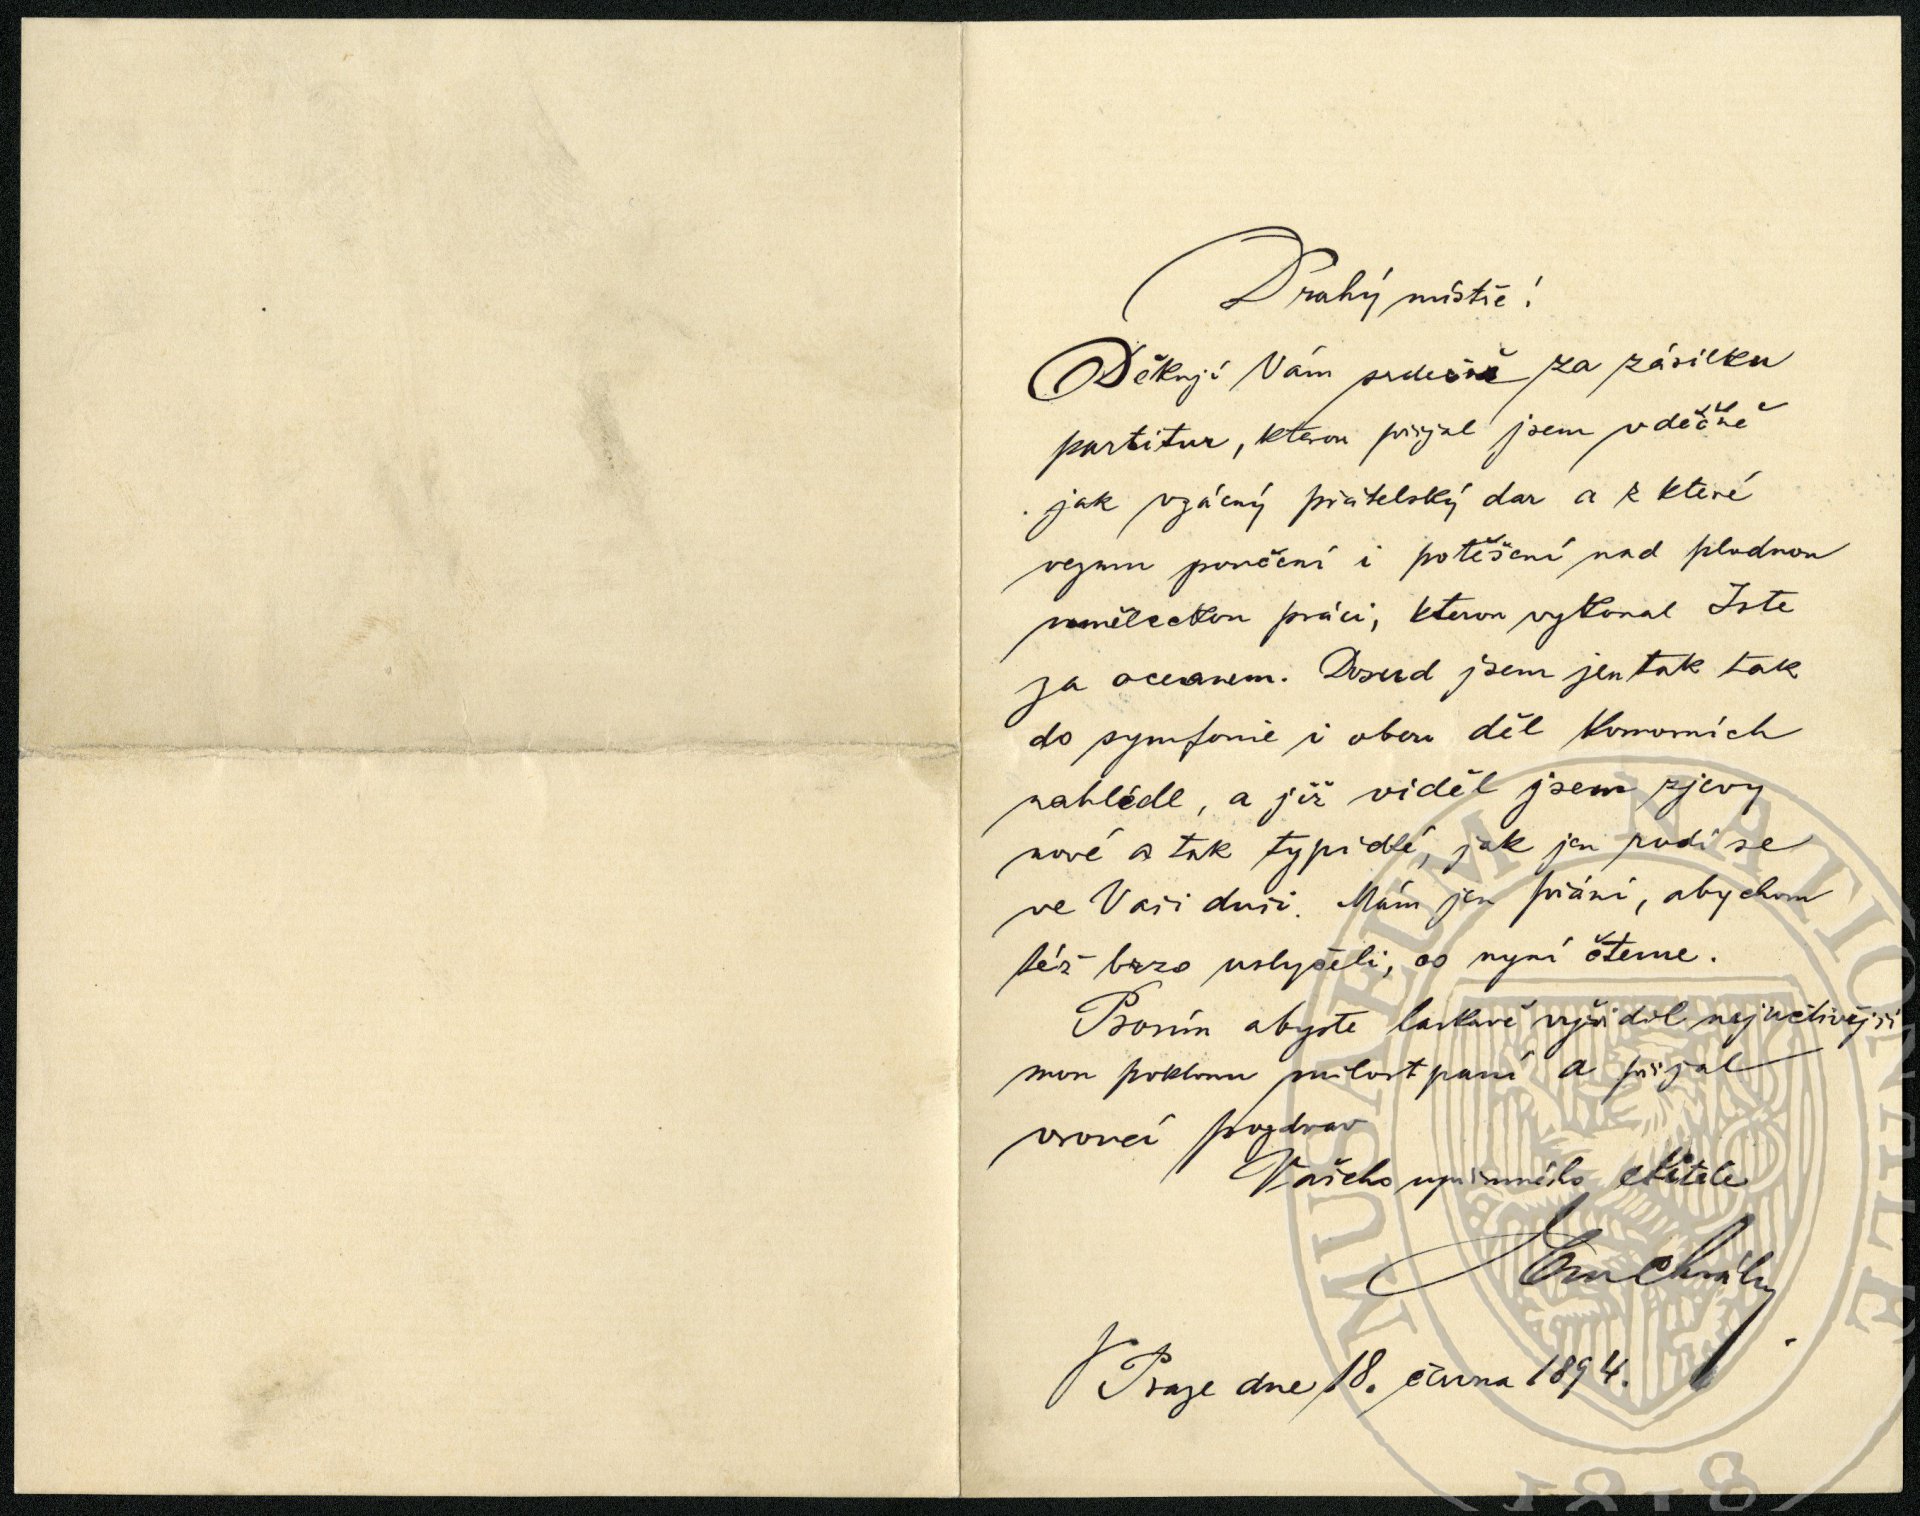 Drahý mistře!
Děkuji Vám srdečně za zásilku
partitur, kterou přijal jsem vděčně
jak vzácný přátelský dar a z které
vezmu poučení i potěšení nad plodnou
uměleckou prací, kterou vykonal Jste
za oceanem. Dosud jsem jen tak tak
do symfonie i obou děl komorních
nahlédl, a již viděl jsem zjevy
nové a tak typické, jak jen rodí se
ve Vaší duši. Mám jen přání, abychom
též brzo uslyšeli, co nyní čteme.
Prosím abyste laskavě vyřídil nejuctivější
mou poklonu milostpaní a přijal
vroucí pozdrav
Vašeho upřímného ctitele
Em Chvály
V Praze dne 18. června 1894.
MUSAEUM NATIONALE
1818